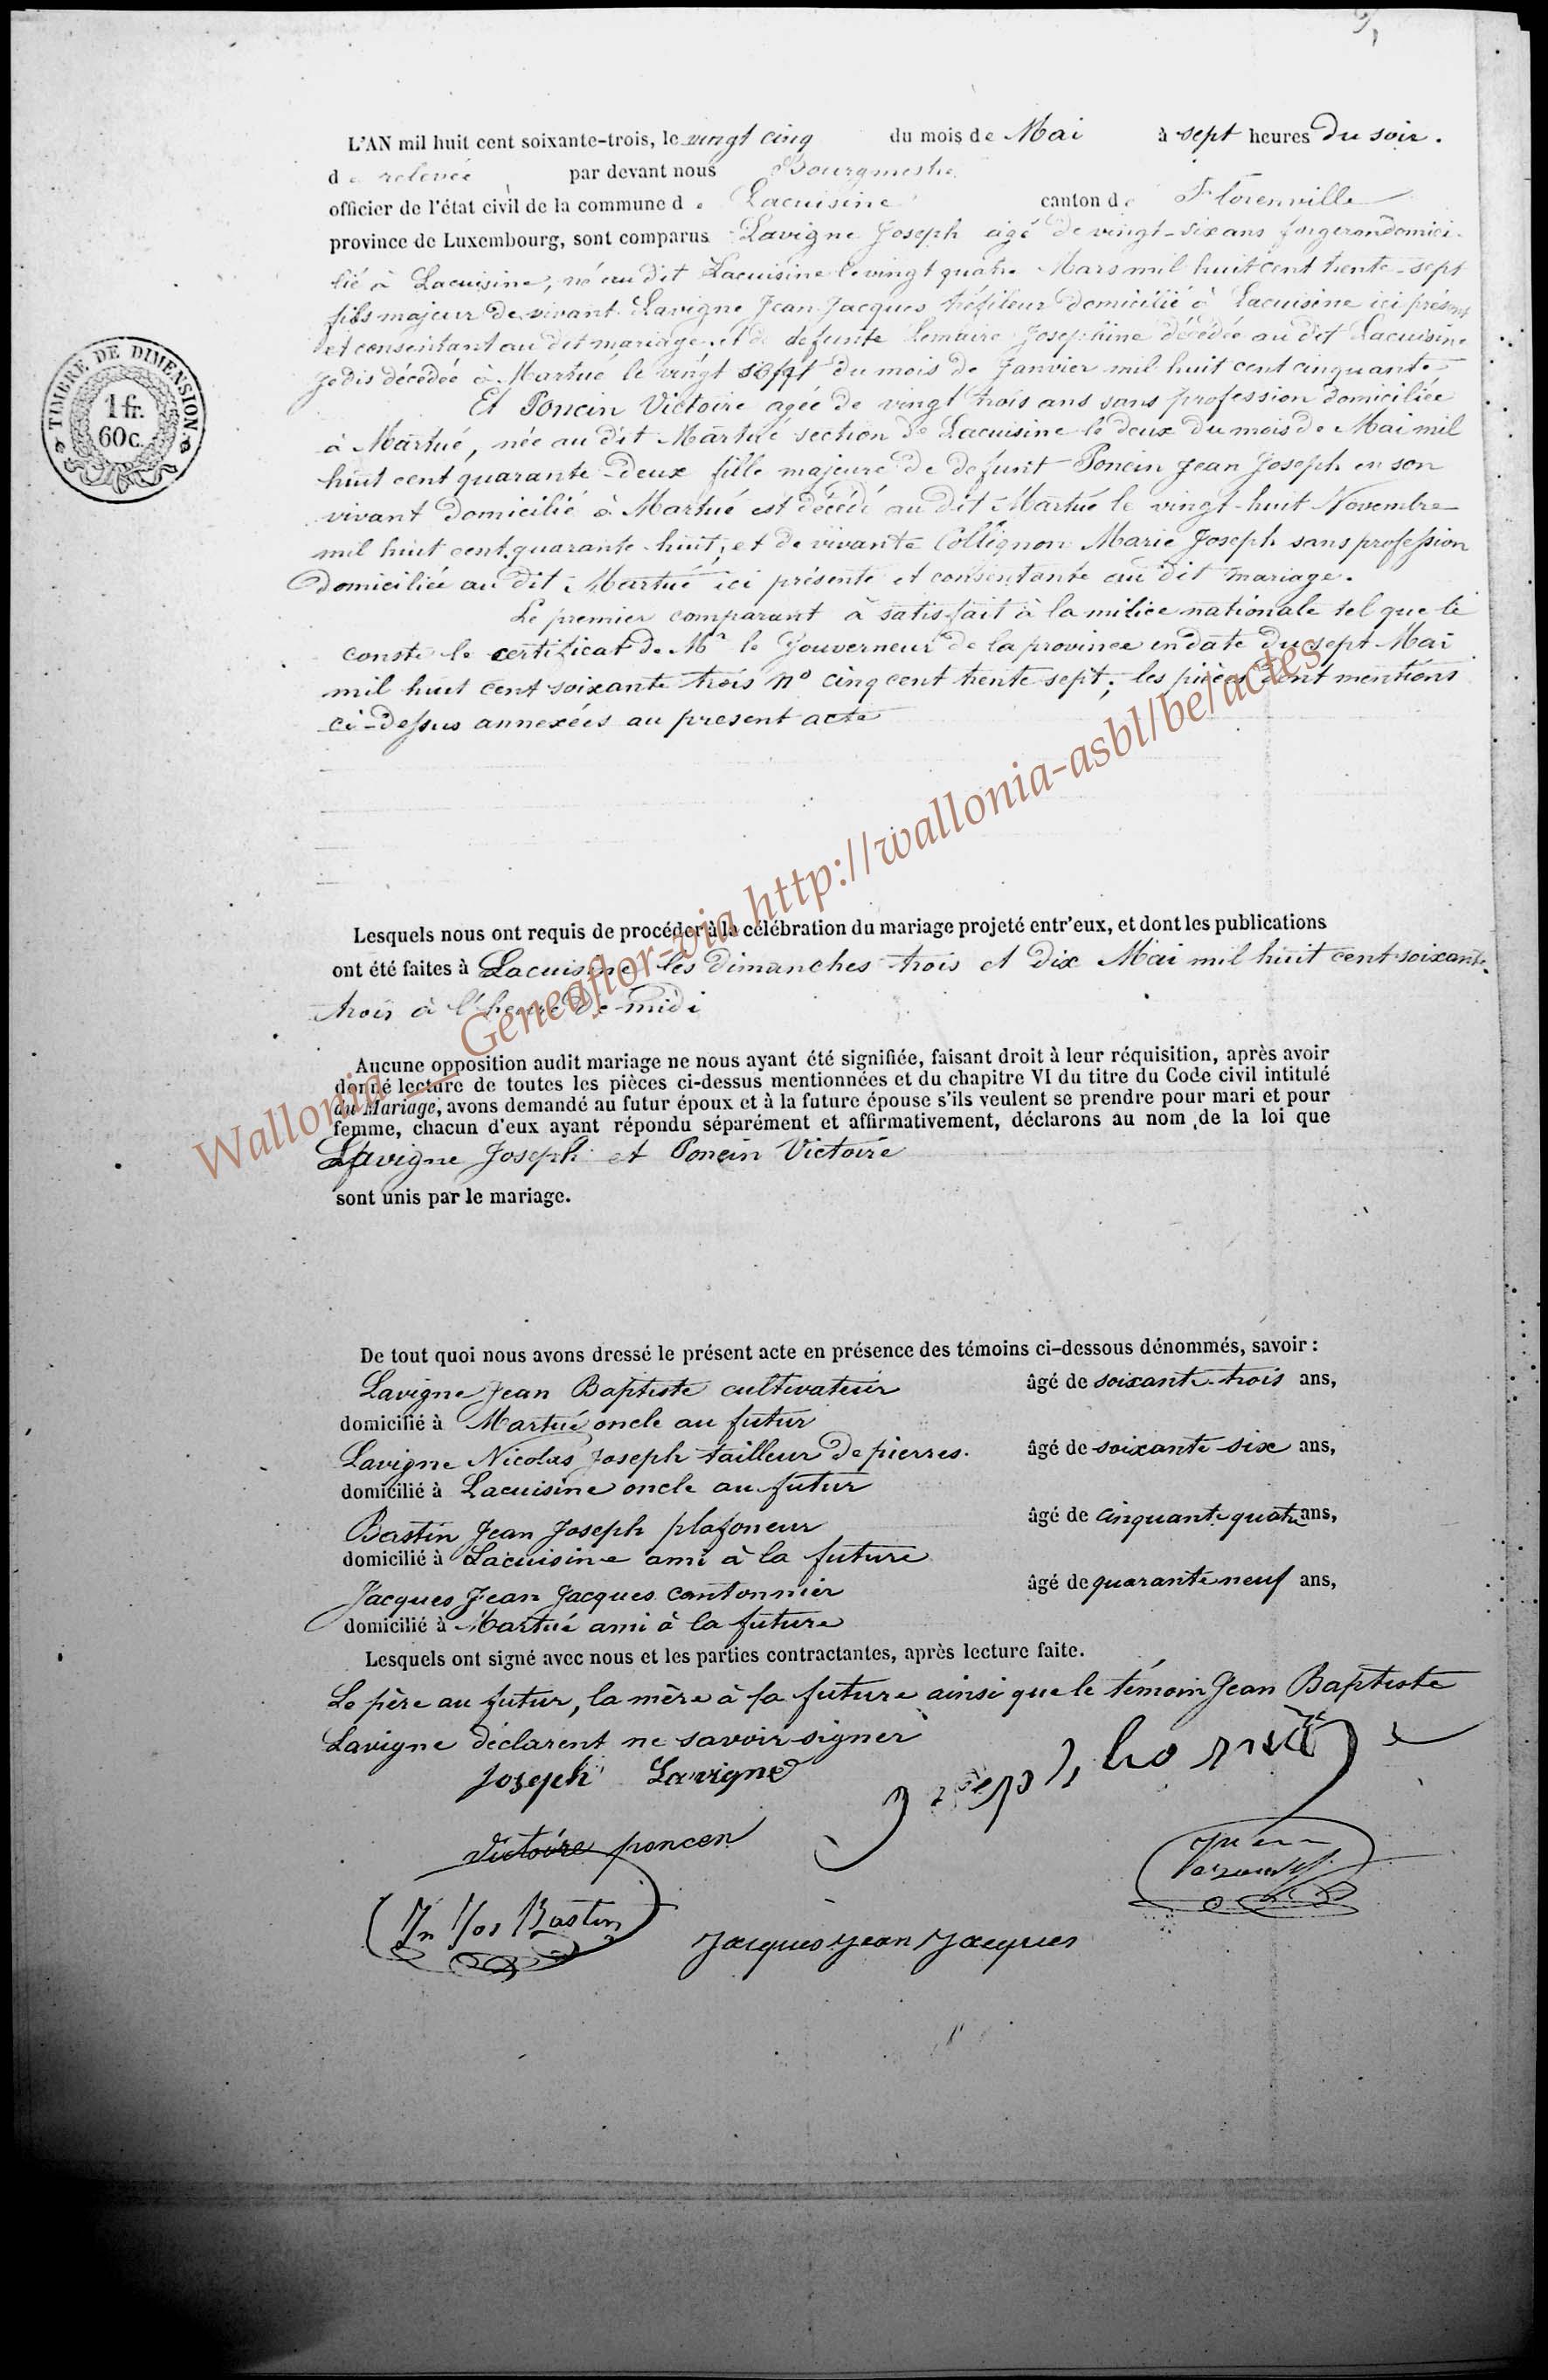 L'AN mil huit cent soixante-trois, le vingt cinq du mois de Mai à sept heures du soir.
de relevée par devant nous Bourgmestre
officier de l'état civil de la commune de Lacuisine canton de Florenville
province de Luxembourg, sont comparus Lavigne Joseph agé de vingt-six ans forgeron domici-
lié à Lacuisine, né au dit Lacuisine le vingt quatre Mars mil huit cent trente-sept
fils majeur de vivant Lavigne Jean Jacques tréfileur domicilié à Lacuisine ici présent
et consentant au dit mariage et de defunte Lemaire Josephine décédée au dit Lacuisine
je dis décédée à Martué le vingt sept du mois de Janvier mil huit cent cinquante
Et Poncin Victoire agée de vingt trois ans sans profession domiciliée
à Martué, née au dit Martué section de Lacuisine le deux du mois de Mai mil
huit cent quarante-deux fille majeure de defunt Poncin Jean Joseph en son
vivant domicilié à Martué est décédé au dit Martué le vingt-huit Novembre
mil huit cent quarante-huit, et de vivante Collignon Marie Joseph sans profession
domiciliée au dit Martué ici présente et consentante au dit mariage.
Le premier comparant à satisfait à la milice nationale tel que le
conste le certificat de Mr le Gouverneur de la province en date du sept Mai
mil huit cent soixante trois no cinq cent trente sept; les pièces dont mentions
ci-dessus annexées au present acte
Lesquels nous ont requis de procéder à la célébration du mariage projeté entr'eux, et dont les publications
ont été faites à Lacuisine les dimanches trois et dix Mai mil huit cent soixante-
trois à l'heure de midi
Aucune opposition audit mariage ne nous ayant été signifiée, faisant droit à leur réquisition, après avoir
donné lecture de toutes les pièces ci-dessus mentionnées et du chapitre VI du titre du Code civil intitulé
du Mariage, avons demandé au futur époux et à la future épouse s'ils veulent se prendre pour mari et pour
femme, chacun d'eux ayant répondu séparément et affirmativement, déclarons au nom de la loi que
Lavigne Joseph et Poncin Victoire
sont unis par le mariage.
De tout quoi nous avons dressé le présent acte en présence des témoins ci-dessous dénommés, savoir :
Lavigne Jean Baptiste cultivateur âgé de soixante-trois ans,
domicilié à Martué oncle au futur
Lavigne Nicolas Joseph tailleur de pierres. âgé de soixante-six ans,
domicilié à Lacuisine oncle au futur
Bastin Jean Joseph plafoneur âgé de cinquante quatre ans,
domicilié à Lacuisine ami à la future
Jacques Jean Jacques cantonnier âgé de quarante neuf ans,
domicilié à Martué ami à la future
Lesquels ont signé avec nous et les parties contractantes, après lecture faite.
Le père au futur, la mère à la future ainsi que le témoin Jean Baptiste
Lavigne déclarent ne savoir signer
Joseph Lavigne
victoire poncen
Jn Jos Bastin
Jacques Jean Jacques
TIMBRE DE DIMENSION
1 fr.
60 c.
Wallonia __ Geneaflor-via http://wallonia-asbl/be/actes